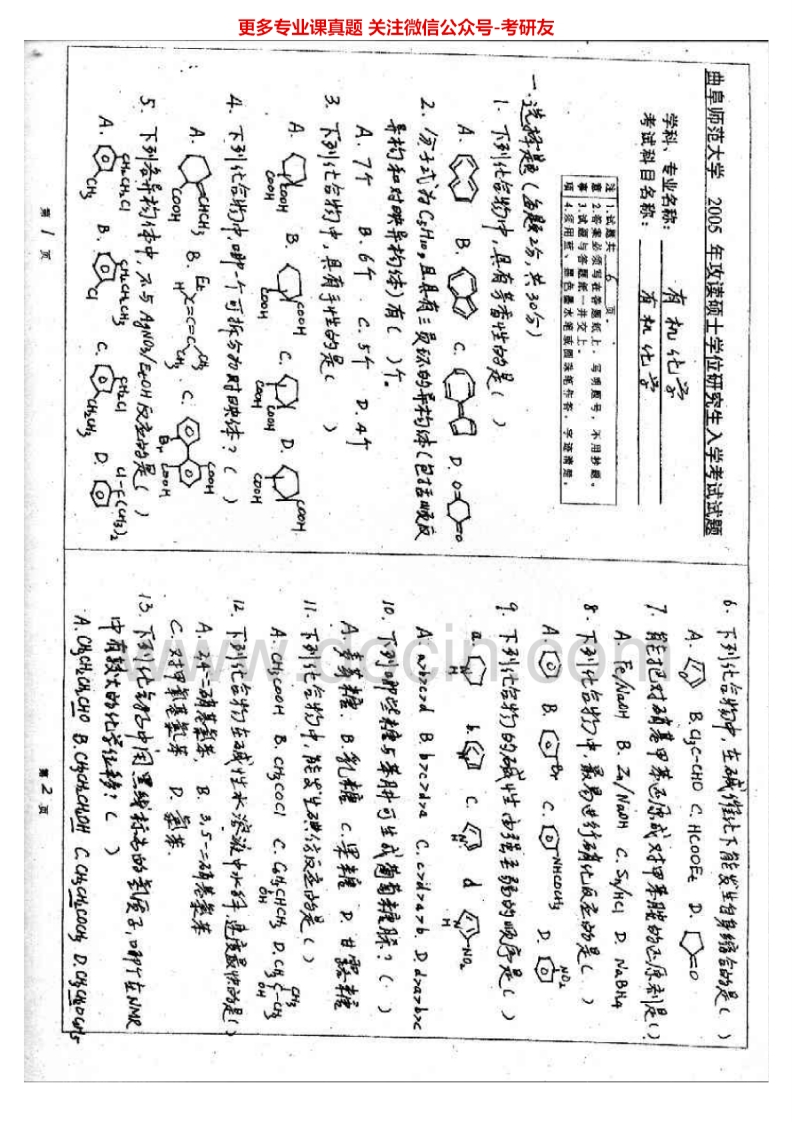 更多专业课真题 关注微信公众号-考研友
曲阜师范大学 2005 年攻读硕士学位研究生入学考试试题
学科、专业名称: 有机化学
考试科目名称: 有机化学
注意事项
1.试题共 6 页。
2.答案必须写在答题纸上,写明题号,不用抄题。
3.试题与答题纸一并交上。
4.须用蓝、黑色墨水笔或圆珠笔作答,字迹清楚。
一.选择题(每题2分,共30分)
1. 下列化合物中,具有芳香性的是( )
A. B. C. D. O= =O
2. 分子式为C5H10,且具有三员环的异构体(包括顺反
异构和对映异构体)有( )个。
A. 7个 B. 6个 C. 5个 D. 4个
3. 下列化合物中,具有手性的是( )
A. COOH COOH B. COOH COOH C. COOH COOH D. COOH COOH
4. 下列化合物中,哪一个可拆分为对映体?( )
A. CHCH3 COOH B. Et H C=C=C CH3 CH3 C. Br COOH COOH
5. 下列各异构体中,不与AgNO3/EtOH反应的是( )
A. CH2CH2Cl CH3 B. CH2CH2CH3 Cl C. CH2Cl CH2CH3 D. Cl-C(CH3)2
第 1 页
6. 下列化合物中,在碱催化下能发生自身缩合的是( )
A. O B. Cl3C-CHO C. HCOOEt D. =O
7. 能把对硝基甲苯还原成对甲苯胺的还原剂是( )
A. Fe/NaOH B. Zn/NaOH C. Sn/HCl D. NaBH4
8. 下列化合物中最易进行硝化反应的是( )
A. B. Br C. NHCOCH3 D. NO2
9. 下列化合物的碱性由强至弱的顺序是( )
a. N H b. N c. N d N H NO2
A. a>b>c>d B. b>c>d>a C. c>d>a>b. D. d>a>b>c
10. 下列哪些糖与苯肼可生成葡萄糖脎?( )
A. 麦芽糖 B. 乳糖 C. 果糖 D. 甘露糖
11. 下列化合物中,能发生碘仿反应的是( )
A. CH3COOH B. CH3COCl C. C6H5CHCH3 OH D. CH3 C-CH3 CH3 OH
12. 下列化合物在碱性水溶液中水解,速度最快的是( )
A. 2,4-二硝基氯苯, B. 3,5-二硝基氯苯
C. 对甲氧基氯苯 D. 氯苯.
13. 下列化合物中用黑线标志的氢质子,哪个在NMR
中有较大的化学位移?( )
A. CH3CH2CH2CHO B. CH3CH2CH2OH C. CH3CH2COCH3 D. CH3CH2OC6H5
第 2 页
www.docin.com